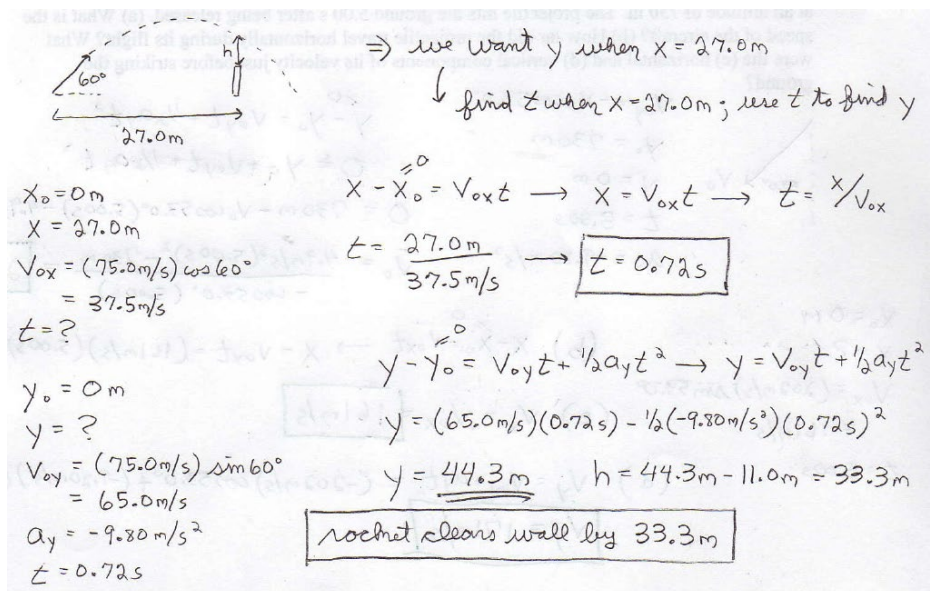 h
⇒ we want y when x = 27.0m
60°
↓ find t when x = 27.0m ; use t to find y
27.0m
x₀ = 0m
x = 27.0m
V₀ₓ = (75.0m/s) cos 60°
= 37.5m/s
t = ?
x - x₀ = V₀ₓt → x = V₀ₓt → t = x/V₀ₓ
0
t = 27.0m / 37.5m/s
t = 0.72s
y₀ = 0m
y = ?
V₀y = (75.0m/s) sin 60°
= 65.0m/s
ay = -9.80 m/s²
t = 0.72s
0
y - y₀ = V₀yt + ½ayt² → y = V₀yt + ½ayt²
y = (65.0m/s)(0.72s) - ½(-9.80m/s²)(0.72s)²
y = 44.3m h = 44.3m - 11.0m = 33.3m
rocket clears wall by 33.3m